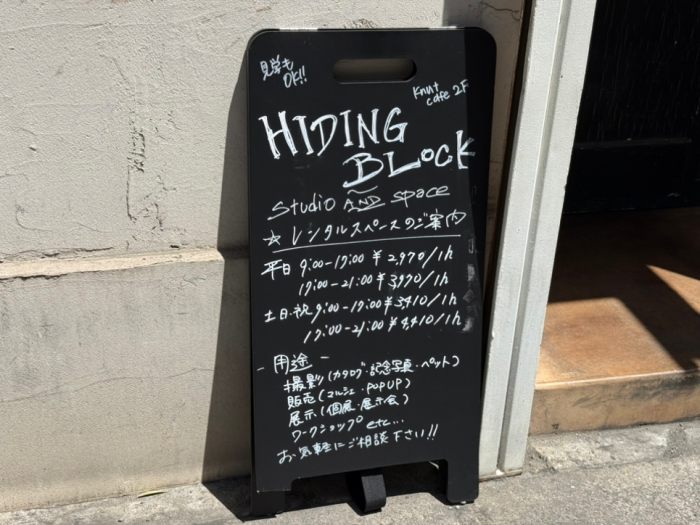 見学も
OK!!
Knut
cafe 2F
HIDING
BLOCK
Studio AND space
☆ レンタルスペースのご案内
平日 9:00-17:00 ¥2,970/1h
17:00-21:00 ¥3,970/1h
土日・祝 9:00-17:00 ¥3,410/1h
17:00-21:00 ¥4,410/1h
- 用途 -
撮影(カタログ・記念写真・ペット)
販売(マルシェ・POPUP)
展示(個展・展示会)
ワークショップ etc...
お気軽にご相談下さい!!